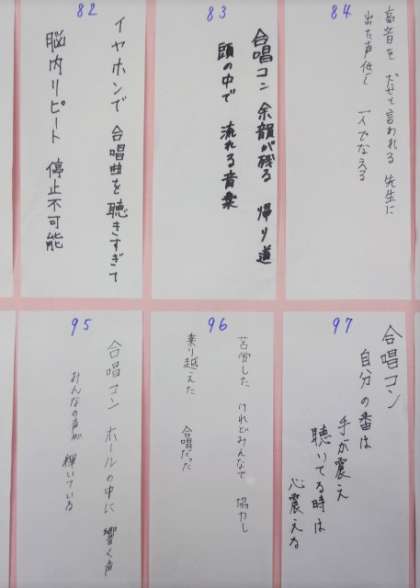 82
イヤホンで 合唱曲を 聴きすぎて
脳内リピート 停止不可能
83
合唱コン 余韻が残る 帰り道
頭の中で 流れる音楽
84
高音を だせと言われる 先生に
出た声低く 一人でなえる
95
合唱コン ホールの中に 響く声
みんなの声が 輝いている
96
苦労した けれどみんなで 協力し
乗り越えた 合唱だった
97
合唱コン
自分の番は
手が震え
聴いてる時は
心震える